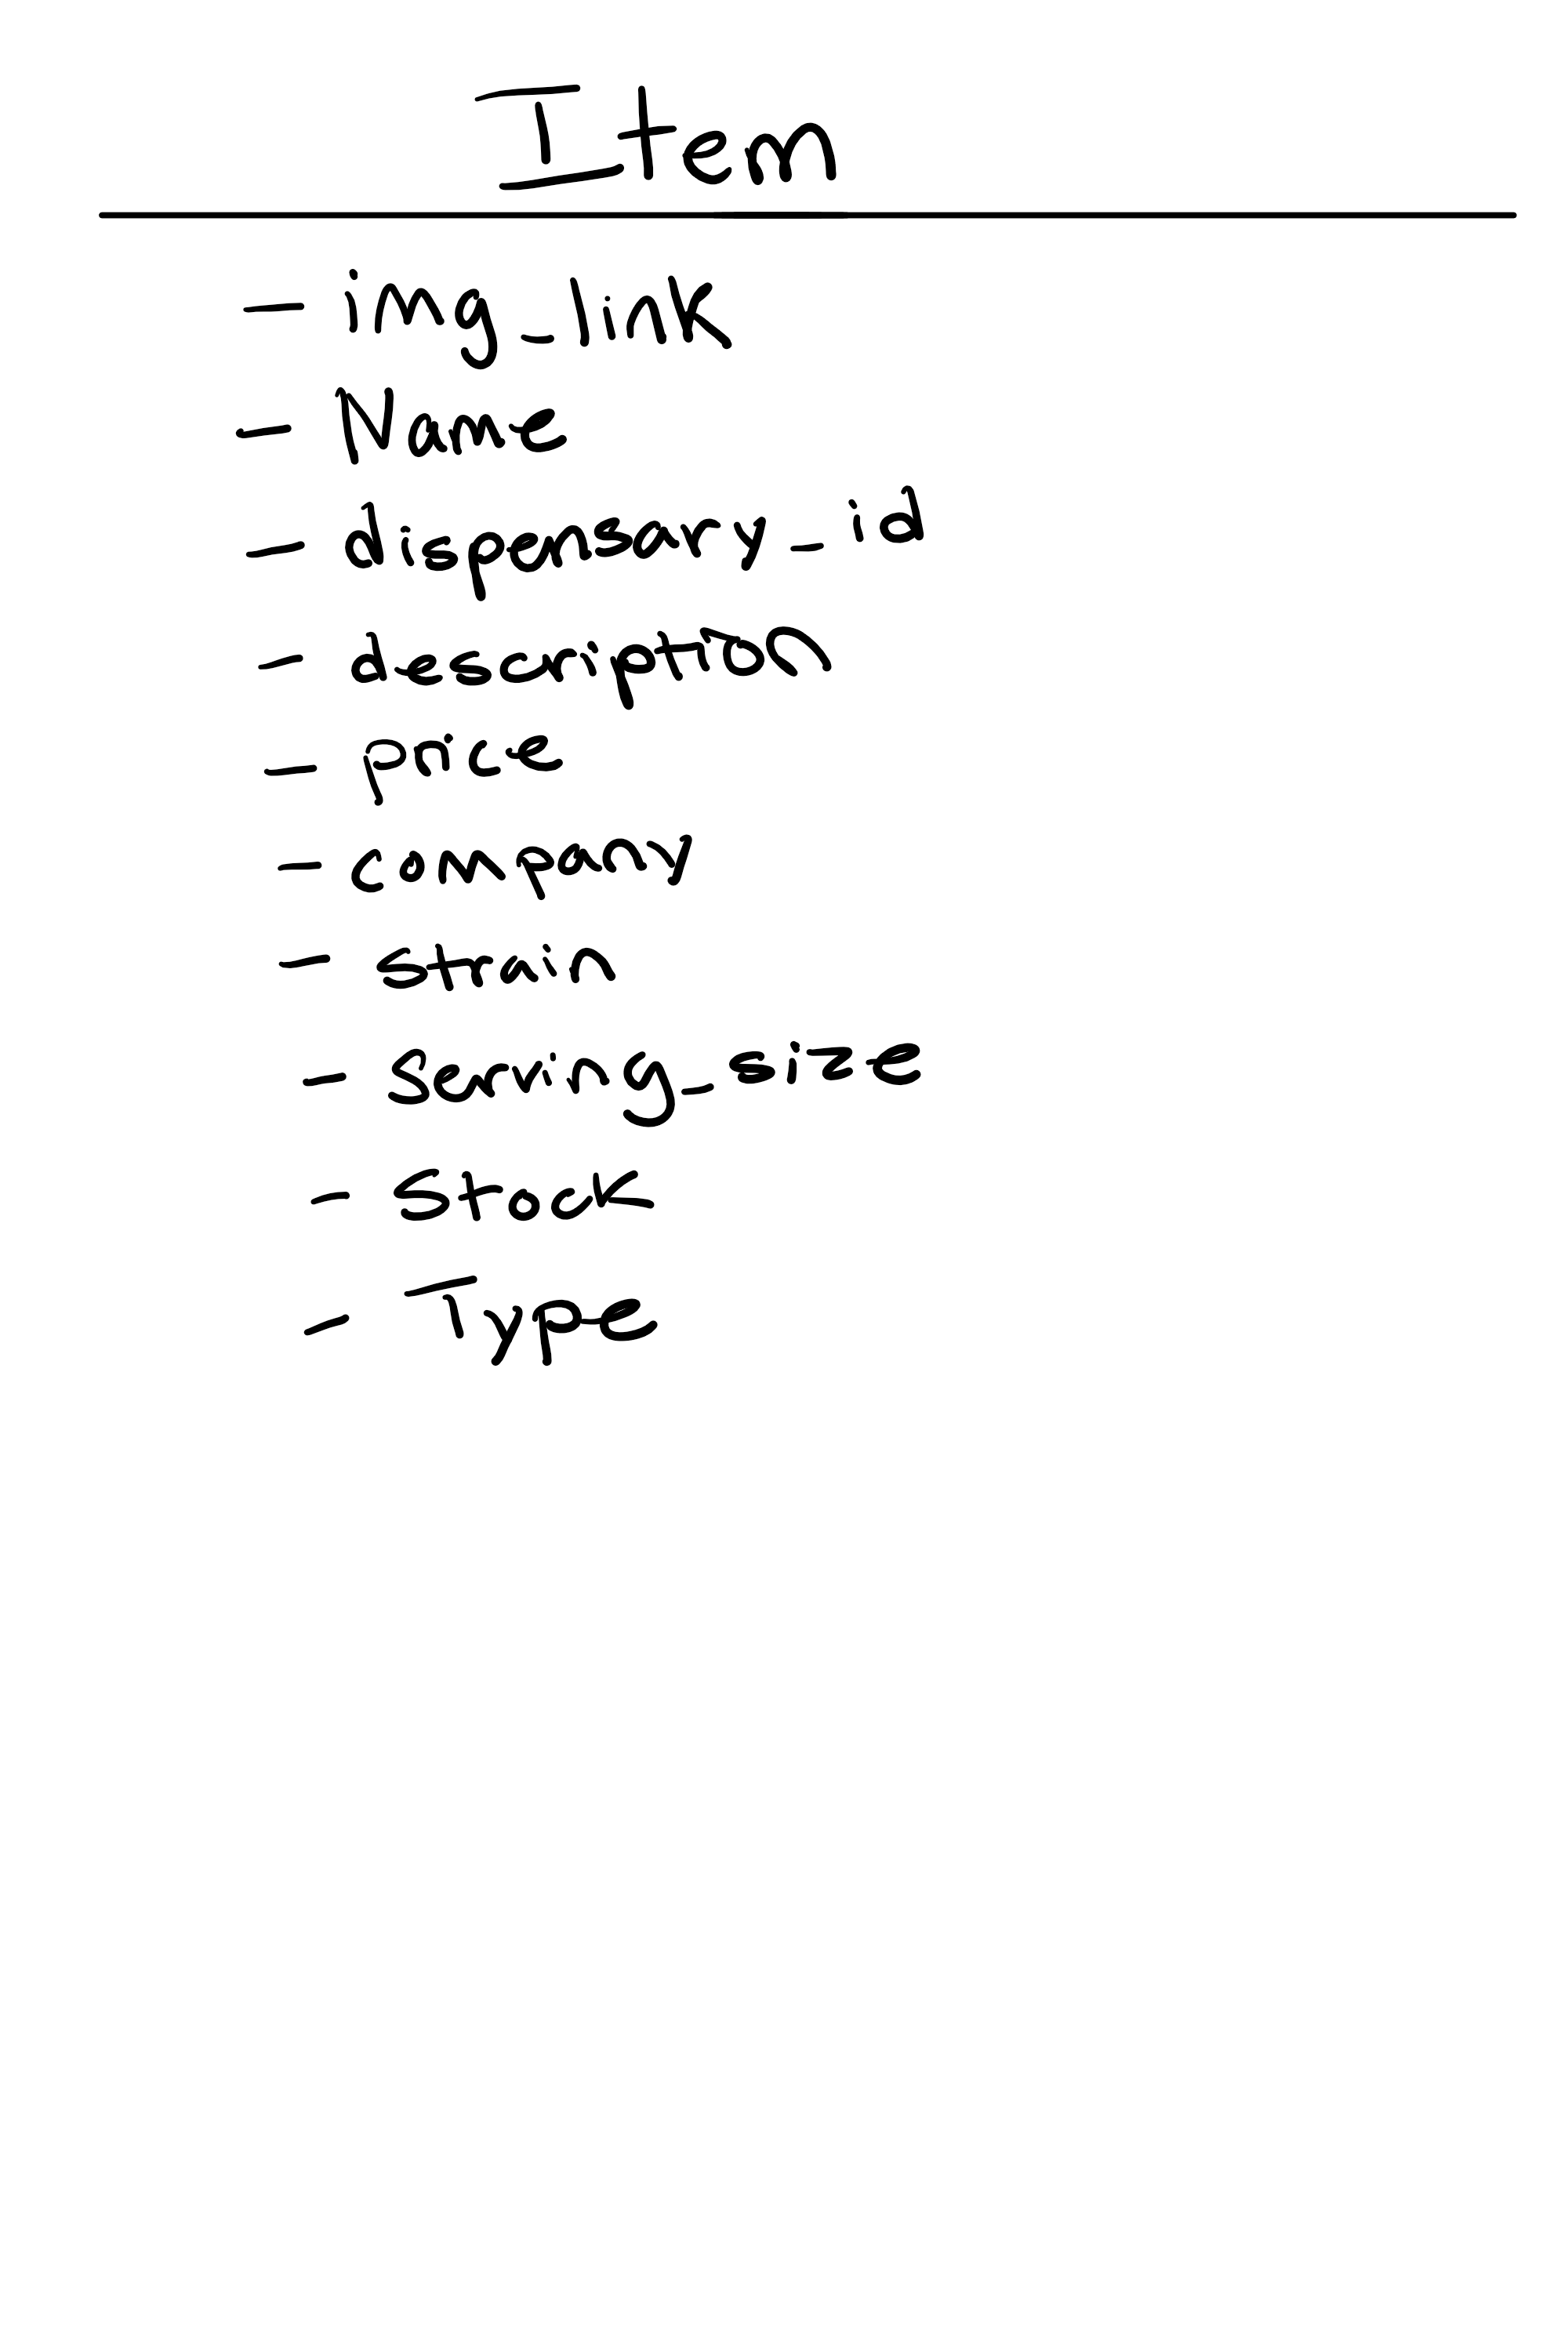 Item
- img_link
- Name
- dispensary_id
- description
- price
- company
- strain
- serving_size
- Stock
- Type